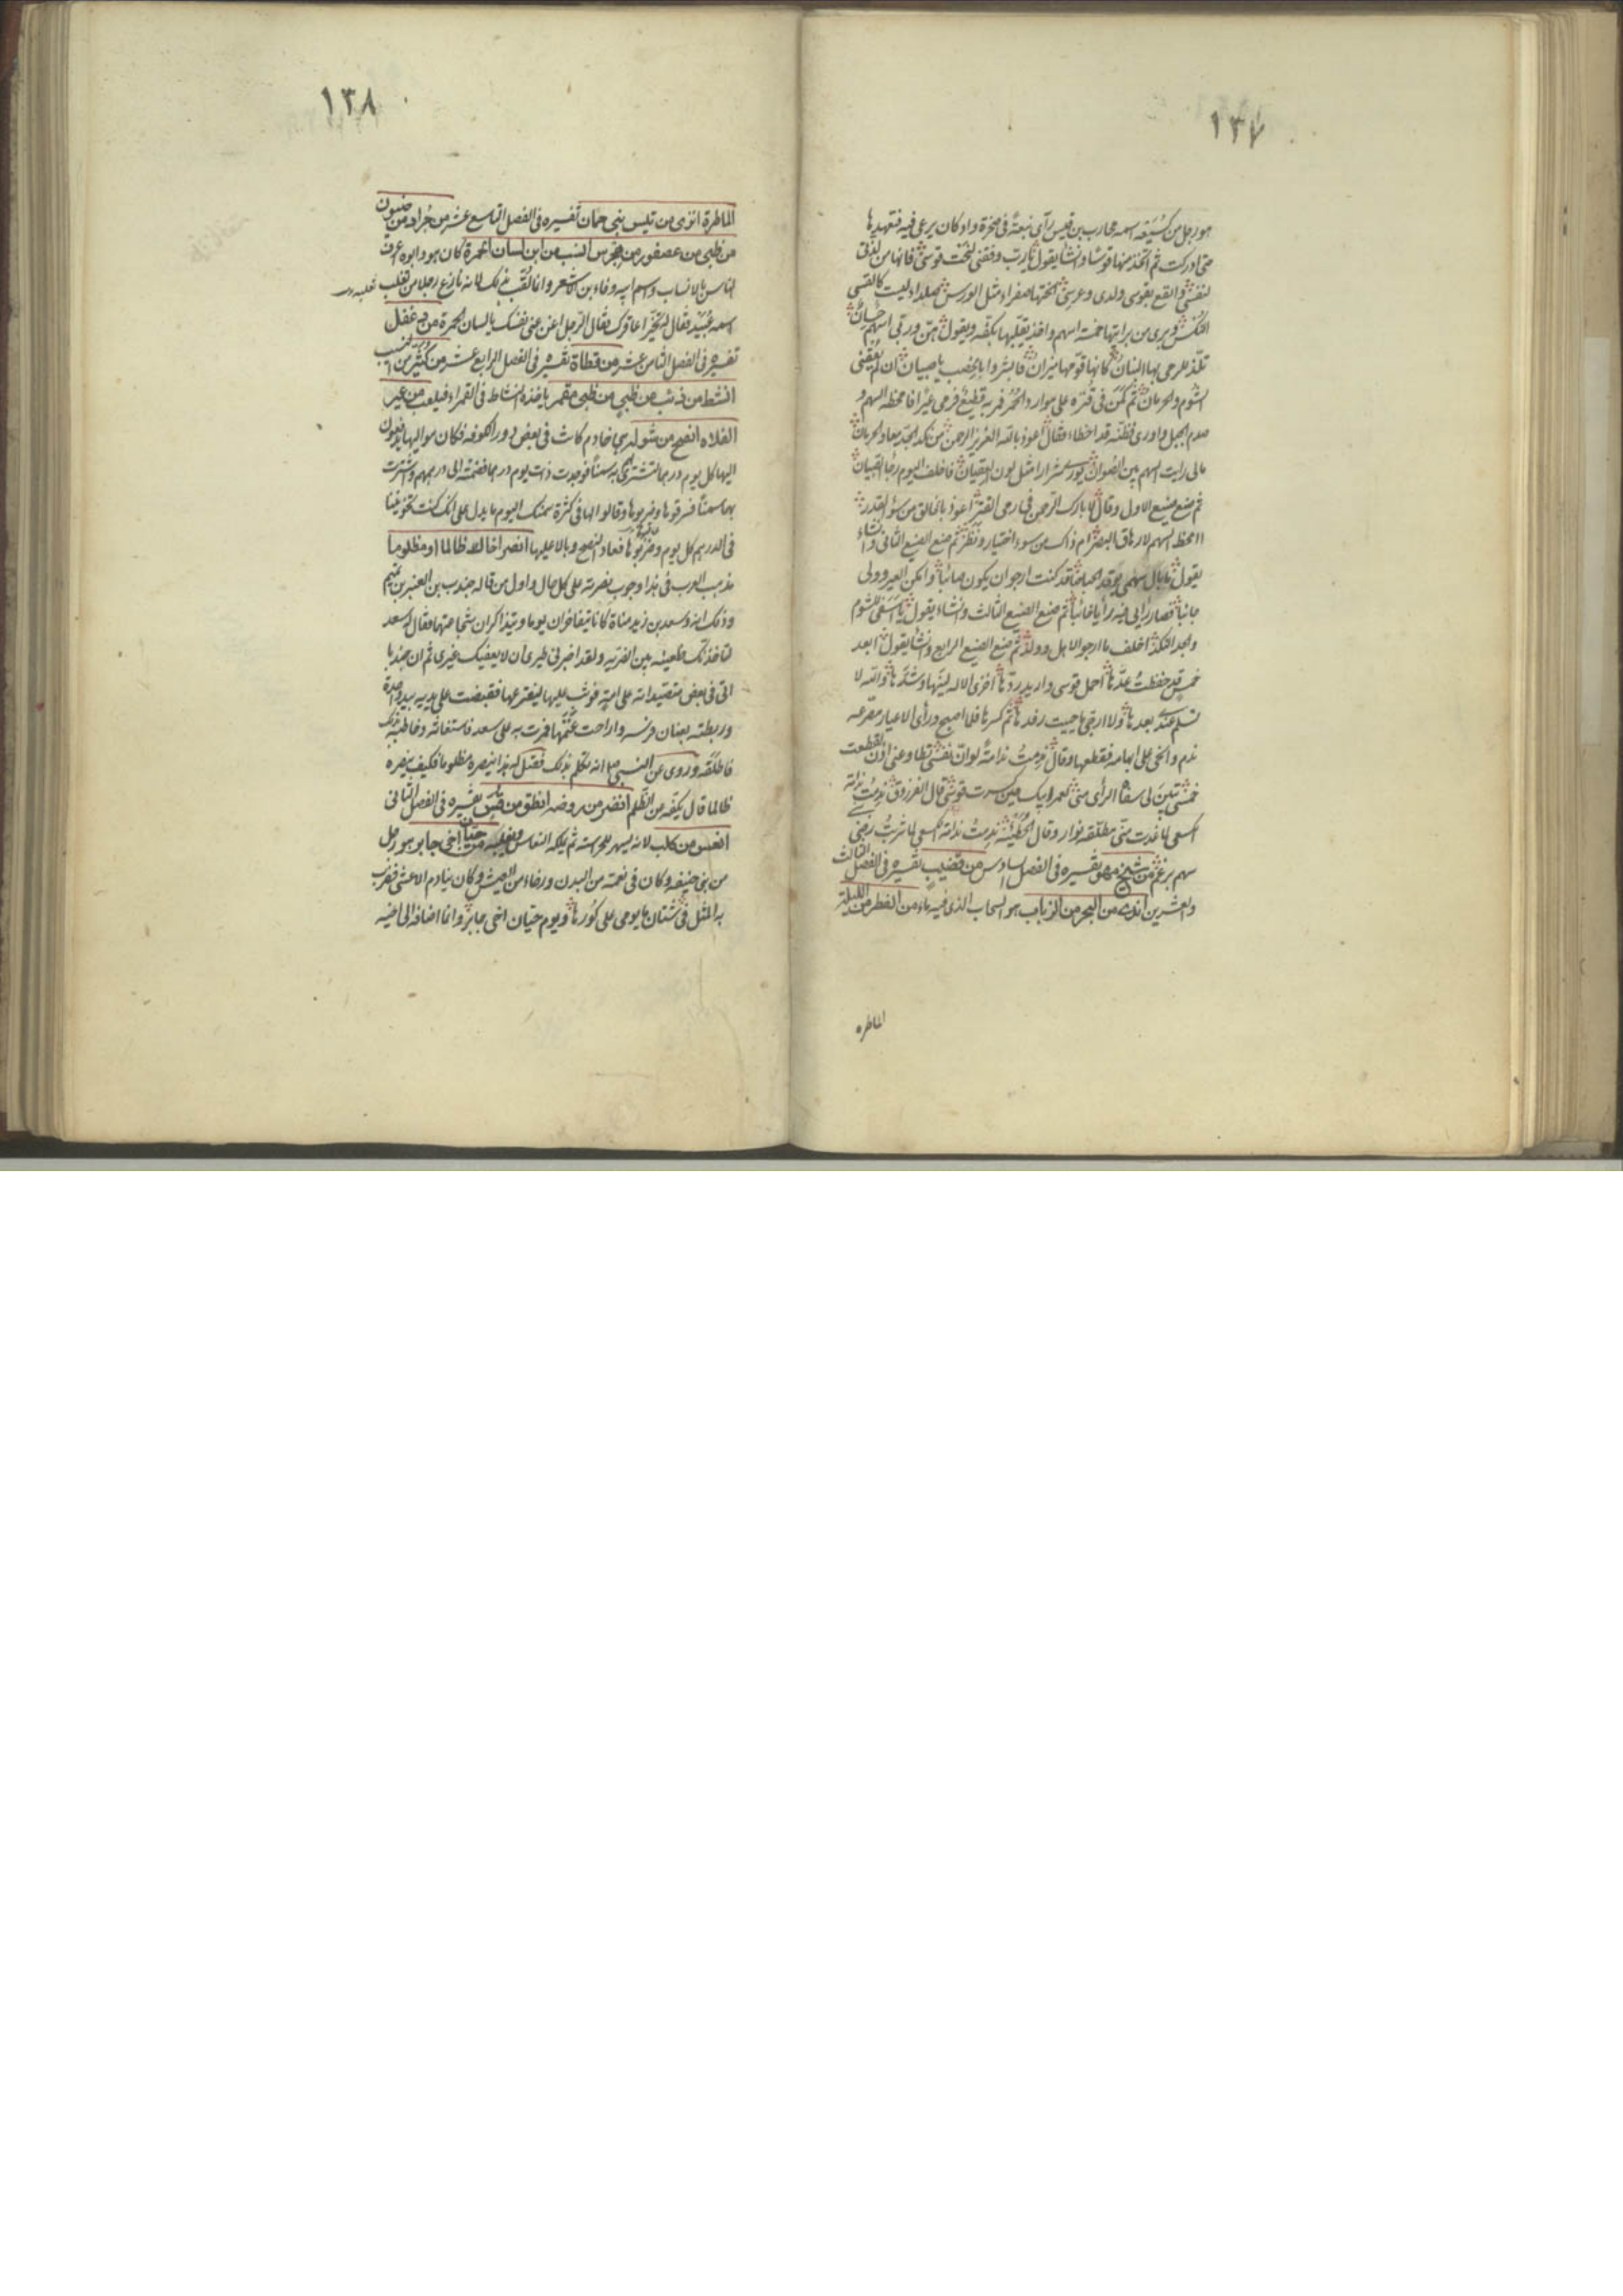 ١٣٧
هو رجل من كسيعه اسمه محارب بن قيس رأى نبعة فى صخرة واد كان يرعى فيه فتعهدها
حتى ادركت ثم اتخذ منها قوسا وانشا يقول يا رب وفقنى لنحت قوسى فانها من لذتى
لنفسى وانفع بقوسى ولدى وعرسى انحتها صفراء مثل الورس صلداء ليست كالقسى
النكس وبرى من برايتها خمسة اسهم واخذ يقلبها بكفه ويقول هن وربى اسهم حسان
تلذ للرمى بها البنان كانما قومها ميزان فابشروا بالخصب يا صبيان ان لم يعقنى
الشوم والحرمان ثم كمن فى قتره على موارد الحمر فمر به قطيع فرمى عيرا فامخطه السهم و
صدم الجبل واورى فظنه قد اخطاء فقال اعوذ بالله العزيز الرحمن من نكد الجد معا والحرمان
مالى رايت السهم بين الصوان يورى شرارا مثل لون العقيان فاخلف اليوم رجا الصبيان
ثم صنع صنيع الاول وقال لا بارك الرحمن فى رمى القتر اعوذ بالخالق من سؤ القدر
اامخط السهم لارهاق البصر ام ذاك من سوء اختيار ونظر ثم صنع الصنيع الثانى وانشاء
يقول ما بال سهمى يوقد الحباحبا قد كنت ارجو ان يكون صائبا وامكن العير وولى
جانبا فصار رايى فيه رأيا خائبا ثم صنع الصنيع الثالث وانشاء يقول يا اسفى للشوم
والجد النكد اخلف ما ارجو لاهل وولد ثم صنع الصنيع الرابع وانشا يقول ابعد
خمس قد حفظت عدها احمل قوسى واريد ردها اخزى الاله لينها وشدها والله لا
تسلم عندى بعدها ولا ارجى ما حييت رفدها ثم كسرها فلما اصبح ورأى الاعيار مصرعه
ندم وانحى على ابهامه فقطعها وقال ندمت ندامة لو ان نفسى تطاوعنى اذن لقطعت
خمسى تبين لى سفاه الرأى منى لعمر ابيك حين كسرت قوسى قال الفرزدق ندمت ندامة
الكسعى لما غدت منى مطلقه نوار وقال الحطيئة ندمت ندامة الكسعى لما شريت رضى
سهم برغم من شيخ مهو تفسيره فى الفصل السادس من قضيب تفسيره فى الفصل الثالث
والعشرين اندى من البحر من الرباب هو السحاب الذى فيه ماء من القطر من الليلة
الماطره
١٣٨
الماطرة انزى من تيس بنى حمان تفسيره فى الفصل التاسع عشر من جراد من ضيون
من ظبى من عصفور من هجرس انسب من ابن لسان الحمرة كان هو وابوه اعرف
الناس بالانساب واسم ابيه وفاء بن الاشعر وانما لقب بذلك لانه نازع رجلا من تغلب
اسمه عبيد فقال
تفسيره فى الفصل الثامن عشر من قطاة تفسيره فى الفصل الرابع عشر من كثير بن
انشط من ذئب من ظبى من ظبى مقمر ياخذه النشاط فى القمراء فيلعب من عير
الفلاه انصح من شوله هى خادم كانت فى بعض دور الكوفه فكان مواليها يدفعون
اليها كل يوم درهما لتشترى به سمنا فوجدت ذات يوم درهما فضمته الى درهمهم واشترت
بهما سمنا فسرقوها وضربوها وقالوا لها فى كثرة سمنك اليوم ما يدل على انك كنت تخونينا
فى الدرهم كل يوم وضربوها فعاد النصح وبالا عليها انصر اخاك ظالما او مظلوما
مذهب العرب فى هذا وجوب نصرته على كل حال واول من قاله جندب بن العنبر بن تميم
وذلك انه وسعد بن زيد مناة كانا يتفاخران يوما ويتذاكران شجاعتهما فقال له سعد
لتاخذنك ظعينه بين الفريه ولقد اخبرنى طيرى ان لا يغيثك غيرى ثم ان جندبا
اتى فى بعض متصيداته على امة فوثب عليها ليفترعها فقبضت على يديه بيد واحدة
وربطته بعنان فرسه وراحت غنمها فمرت به على سعد فاستغاثه وخاطبه بذلك
فاطلقه وروى عن النبى ص انه تكلم بذلك فقيل له هذا ينصره مظلوما فكيف ينصره
ظالما قال يكفه من الظلم انضر من روضه انطق من قس تفسيره فى الفصل الثانى
انعس من كلب لانه يسهر للحراسة ثم يملكه النعاس من حيان اخى جابر هو رجل
من بنى حنيفه وكان فى نعمة من البدن ورخاء من العيش وكان ينادم الاعشى فضرب
به المثل فى شتان ما يومى على كورها ويوم حيان اخى جابر وانما اضافه الى اخيه